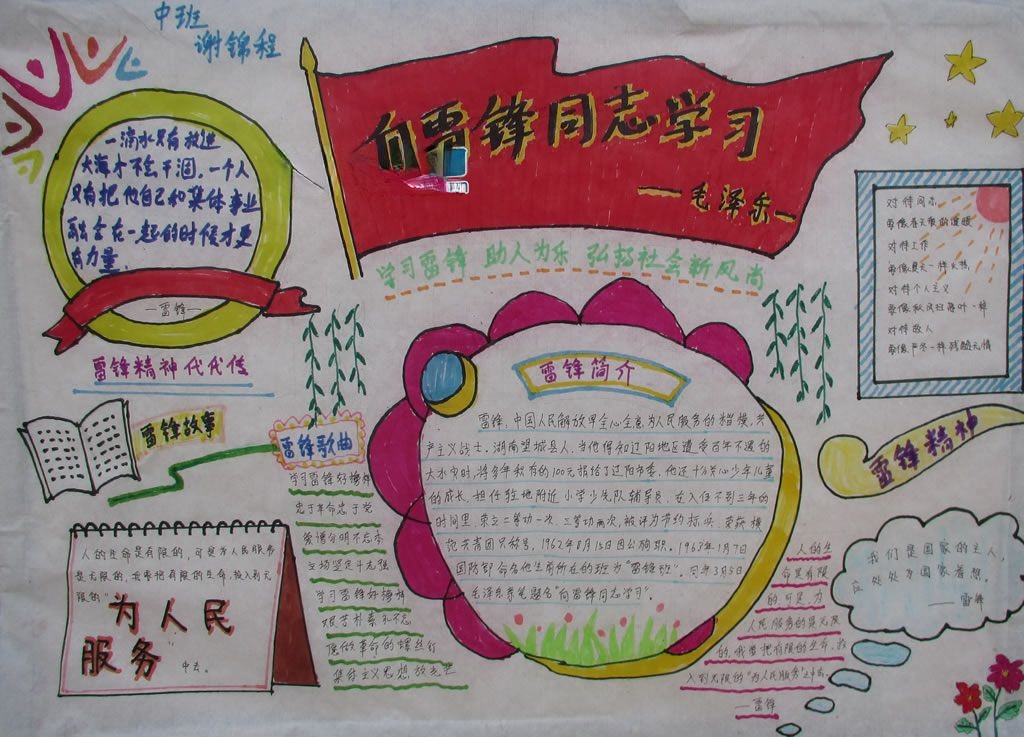 中班
谢锦程
向雷锋同志学习
——毛泽东—
学习雷锋 助人为乐 弘扬社会新风尚
一滴水只有放进
大海才不会干涸。一个人
只有把他自己和集体事业
融合在一起的时候才更
有力量。
—雷锋—
雷锋精神代代传
雷锋故事
雷锋歌曲
学习雷锋好榜样
忠于革命忠于党
爱憎分明不忘本
立场坚定斗志强
学习雷锋好榜样
艰苦朴素永不忘
愿做革命的螺丝钉
集体主义思想放光芒
人的生命是有限的,可是为人民服务
是无限的,我要把有限的生命,投入到无
限的"
为人民
服务"
中去。
雷锋简介
雷锋,中国人民解放军全心全意为人民服务的楷模,共
产主义战士。湖南望城县人。当他得知辽阳地区遭受百年不遇的
大水灾时,将多年积存的100元捐给了辽阳市委。他还十分关心少年儿童
的成长,担任驻地附近小学少先队辅导员。在入伍不到三年的
时间里,荣立二等功一次,三等功两次,被评为节约标兵,荣获模
范共青团员称号,1962年8月15日因公殉职。1963年1月7日
国防部命名他生前所在的班为"雷锋班"。同年3月5日
毛泽东亲笔题名"向雷锋同志学习"。
对待同志
要像春天般的温暖
对待工作
要像夏天一样火热
对待个人主义
要像秋风扫落叶一样
对待敌人
要像严冬一样残酷无情
雷锋精神
我们是国家的主人,
应处处为国家着想。
——雷锋
人的生
命是有限
的可是,为
人民服务的是无限
的,我要把有限的生命,投
入到无限的"为人民服务"之中去。
—雷锋